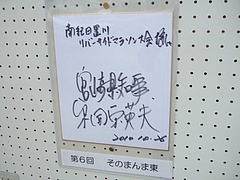 南紀日置川
リバーサイドマラソン大会 様江
宮崎県知事
東国原英夫
2010.10.26
第6回 そのまんま東